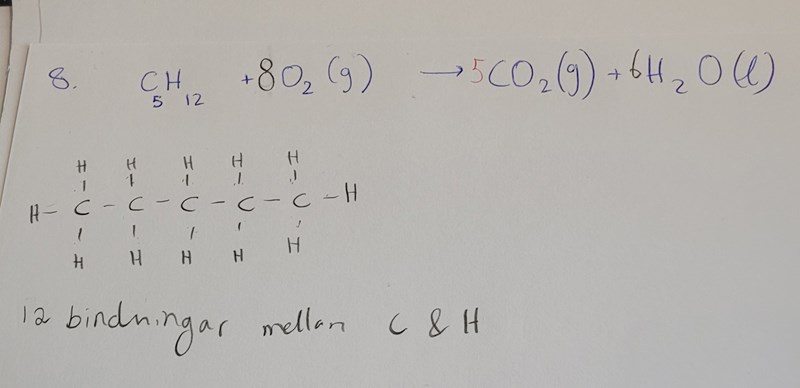 8. C₅H₁₂ +8O₂(g) → 5CO₂(g) + 6H₂O(l)
H H H H H
H - C - C - C - C - C - H
H H H H H
12 bindningar mellan C & H